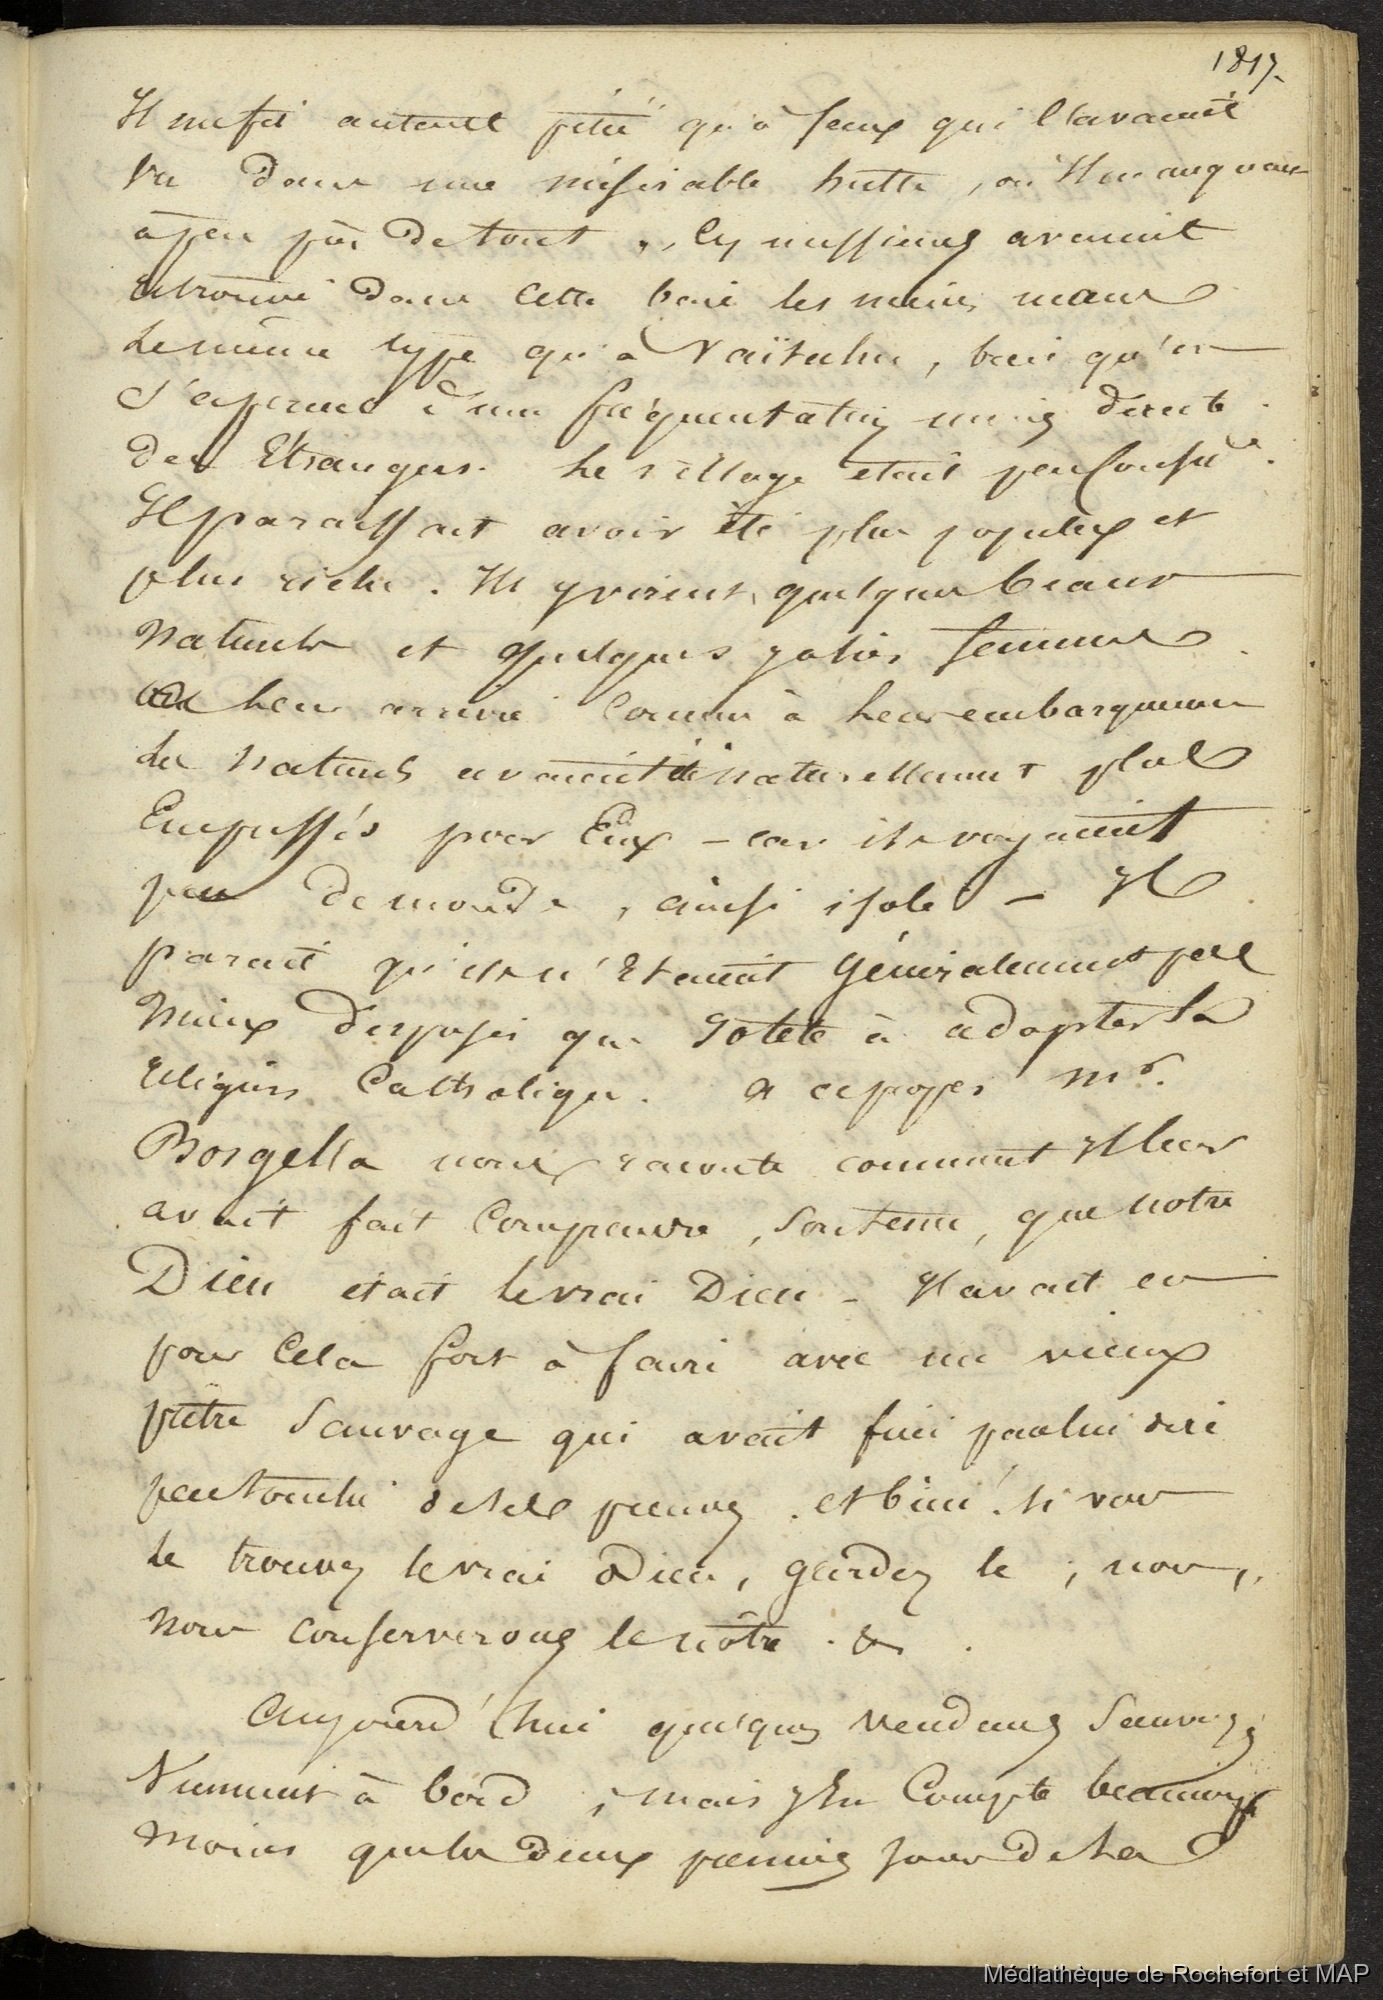 1817.
Il me fit autant pitié qu'à ceux qui l'avaient
vu dans une misérable hutte, où il manquait
à peu près de tout. Ces messieurs avaient
retrouvé dans cette baie les mêmes mœurs
le même type qu'à Vaïtahu, bien qu'on
s'aperçut d'une fréquentation moins directe
des Etrangers. Le village était peu considble.
Il paraissait avoir été plus populeux et
plus riche. Ils y virent quelques beaux
naturels et quelques jolies femmes
à leur arrivée comme à leur embarquement
les naturels avaient été naturellement plus
Empressés pour Eux - car ils voyaient
peu de monde, ainsi isolés - Il
parait qu'ils n'Etaient Généralement pas
mieux disposés que Iotété à adopter la
religion Catholique. à ce propos Mr.
Borgella nous raconte comment il leur
avait fait comprendre, soutenu, que notre
Dieu était le vrai Dieu - Il avait eu
pour cela fort à faire avec un vieux
prêtre Sauvage qui avait fini par lui dire
peu touché de ses preuves. et bien! si vous
le trouvez le vrai Dieu, gardez le ; nous,
nous conserverons le nôtre. &
Aujourd'hui quelques vendeurs sauvages
viennent à bord ; mais j'en compte beaucoup
moins que les deux premiers jours de la
Médiathèque de Rochefort et MAP